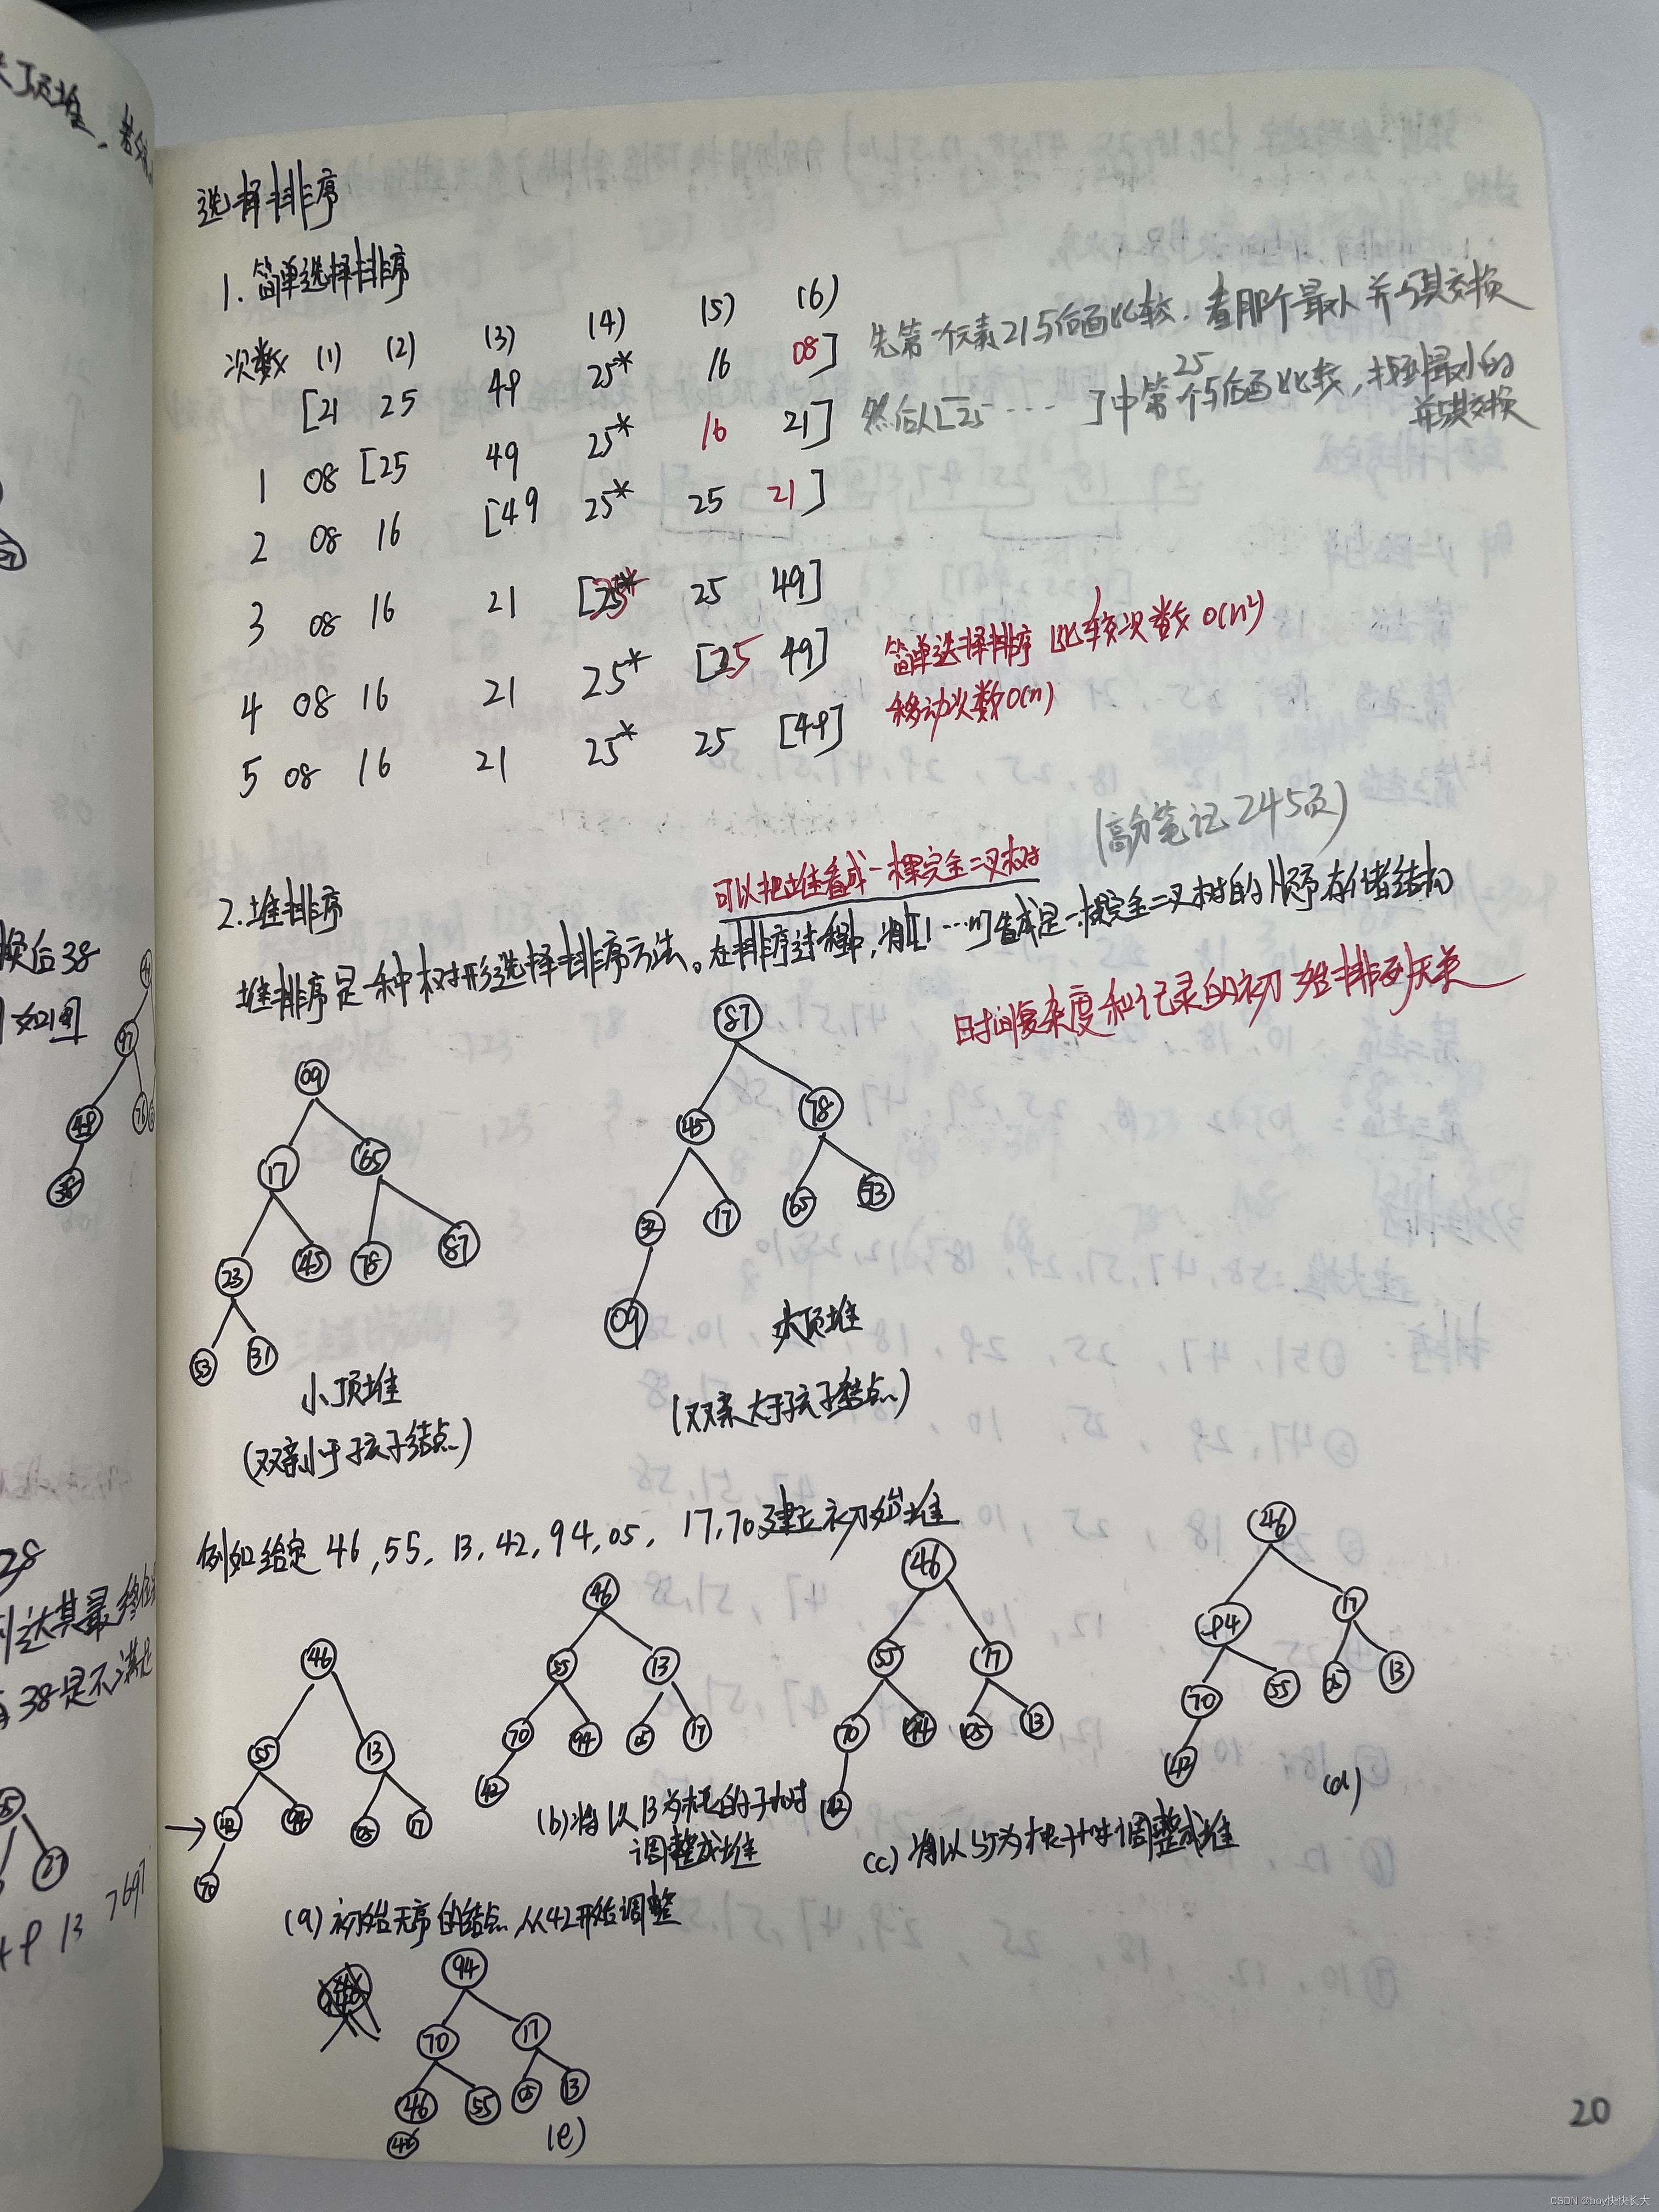 选择排序
1. 简单选择排序
次数 (1) (2) (3) (4) (5) (6)
[21 25 49 25* 16 08] 先第一个元素21与后面比较，看那个最小并与其交换
1 08 [25 49 25* 16 21] 然后从[25 ……]中第一个25与后面比较，找到最小的并与其交换
2 08 16 [49 25* 25 21]
3 08 16 21 [25* 25 49]
4 08 16 21 25* [25 49] 简单选择排序 比较次数 O(n²)
移动次数O(n)
5 08 16 21 25* 25 [49]
(高分笔记245页)
可以把堆看成一棵完全二叉树
2.堆排序
堆排序是一种树形选择排序方法。在排序过程中，将L[1…n]看成是一棵完全二叉树的顺序存储结构
时间复杂度和记录的初始排列无关
09
17 65
23 45 78 87
53 31
小顶堆
(双亲小于孩子结点)
87
45 78
32 17 65 53
09
大顶堆
(双亲大于孩子结点)
例如给定 46,55,13,42,94,05,17,70建立初始堆
46
55 13
42 94 05 17
70
(a)初始无序的结点,从42开始调整
46
55 13
70 94 05 17
42
(b)将以13为根的子树
调整成堆
46
55 17
70 94 05 13
42
(c)将以55为根子树调整成堆
46
94 17
70 55 05 13
42
(d)
94
70 17
46 55 05 13
(e)
换后38
如图
97
49 76
38
28
38是不满足
49 13 7697
27
20
CSDN @boy快快长大